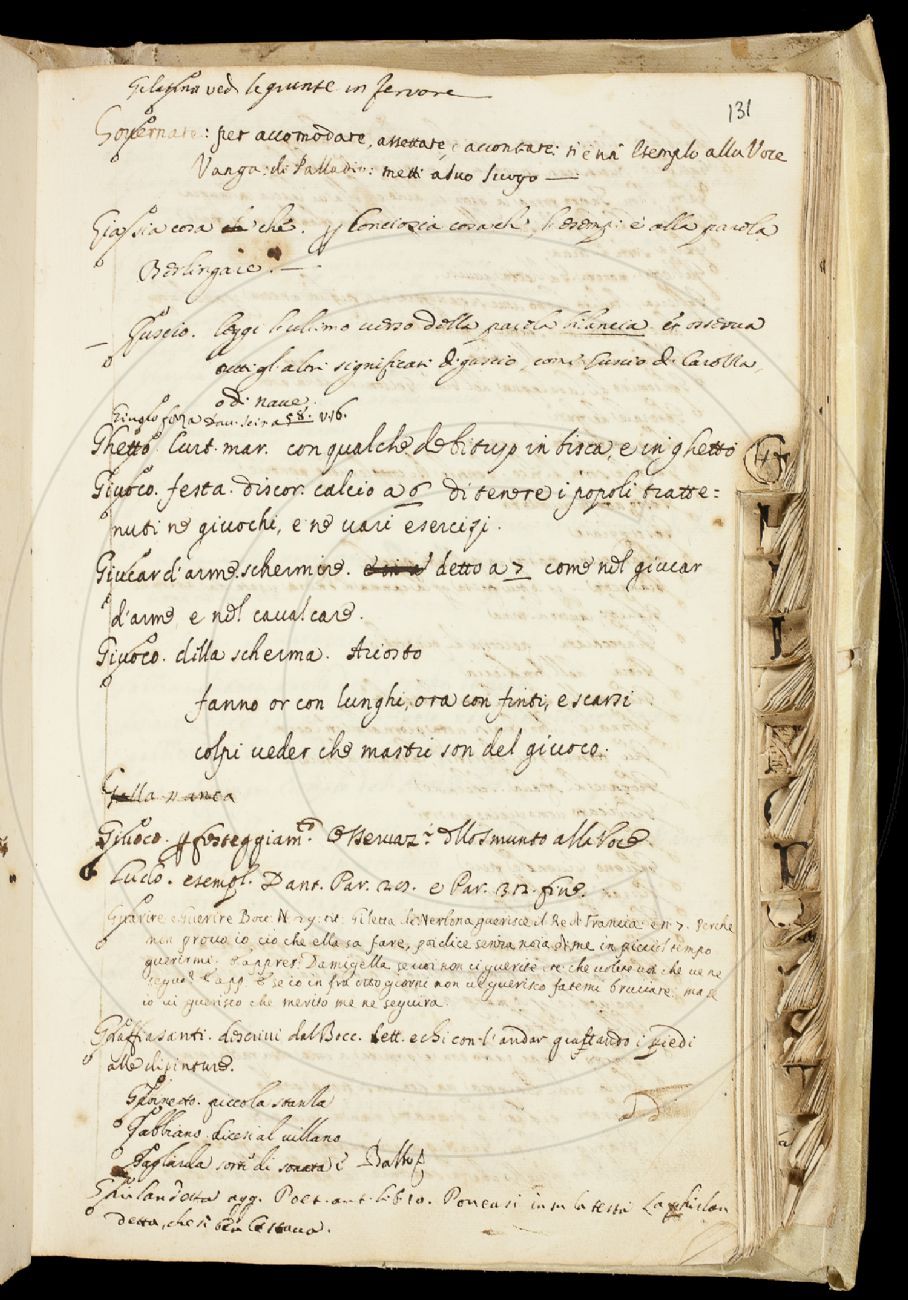 131
Gelosia ved. le giunte in fervore
Governare: per accomodare, assettare, e acconciare: vi è un Esempio alla Voce
Vanga: di Palladio: metti a suo luogo —
Già sia cosa che. Conciosia cosa che, l'esempi è alla parola
Berlingare. —
— Guscio. leggi l'ultimo verso della parola bilancia et osserva
tutti gl'altri significati di guscio, come Guscio di Carolla,
o di nave.
58. v. 6.
Ghetto. Curt. mar. con qualche debituzo in bisca, e in ghetto
Givoco. festa. discor. calcio a 6 di tenere i popoli tratte=
nuti ne givochi, e ne vari esercizi.
Givcar d'arme. schermire. detto a 7 come nel givcar
d'arme e nel cavalcare.
Givoco. della scherma. Ariosto
fanno or con lunghi, ora con finti, e scarsi
colpi veder che mastri son del givoco.
Galla manca
Givoco. festeggiam.to Osservaz. dello smunto alla Voce
Ludo. esempl. Dant. Par. 28. e Par. 30. fine.
Guarire e Guerire Bocc. N. 29: tit. Giletta di Nerbona guerisce il Re di Francia: e n. 7. Perche
non pruovo io, ciò che ella sa fare, poi dice senza noia di me in picciol tempo
guerirmi. e appres. Damigella se voi non ci guerite che volete voi che ve ne
segua? e app. se io in fra otto giorni non vi guerisco fatemi bruciare: ma se
io vi guerisco che merito me ne seguira
Graffiasanti. descrivi dal Bocc. lett. e chi con l'andar guastando i piedi
alle dipinture.
Gabinetto. piccola stanza
Gabbiano. dicesi al villano
Gagliarda sorte di sonata e Ballo
Ghirlandetta agg. Poet. ant. Ponensi in su la testa La ghirlan
detta, che si ben le stava.
G
H
I